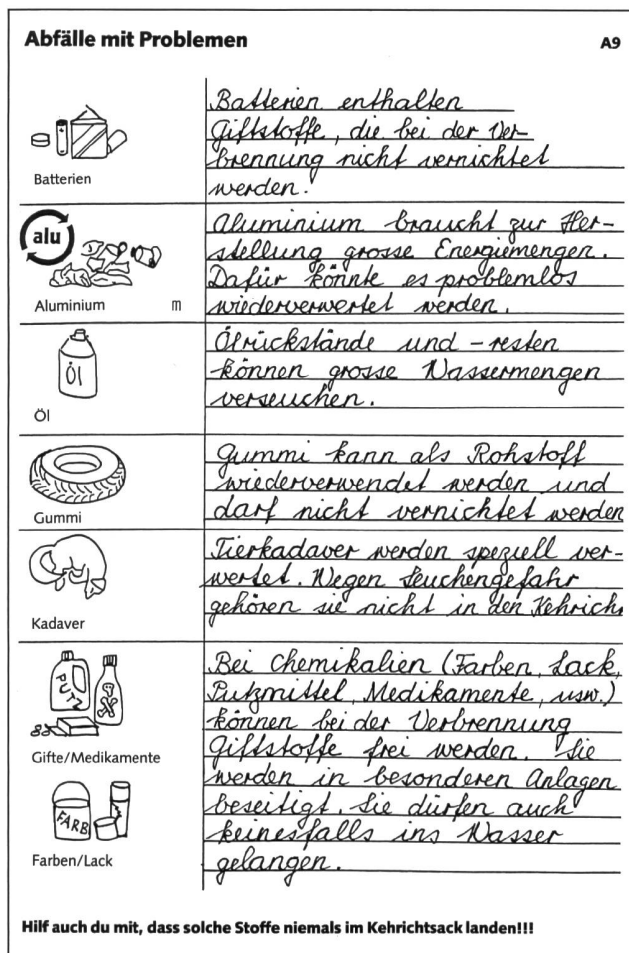 Abfälle mit Problemen
A9
Batterien enthalten
Giftstoffe, die bei der Ver-
brennung nicht vernichtet
werden.
Batterien
alu
Aluminium braucht zur Her-
stellung grosse Energiemengen.
Dafür könnte es problemlos
wiederverwertet werden.
Aluminium m
Ölrückstände und -resten
können grosse Wassermengen
verseuchen.
Öl
Öl
Gummi kann als Rohstoff
wiederverwendet werden und
darf nicht vernichtet werden
Gummi
Tierkadaver werden speziell ver-
wertet. Wegen Seuchengefahr
gehören sie nicht in den Kehrich
Kadaver
Bei Chemikalien (Farben, Lack,
Putzmittel, Medikamente, usw.)
können bei der Verbrennung
Giftstoffe frei werden. Sie
werden in besonderen Anlagen
beseitigt. Sie dürfen auch
keinesfalls ins Wasser
gelangen.
PUTZ
Gifte/Medikamente
FARB
Farben/Lack
Hilf auch du mit, dass solche Stoffe niemals im Kehrichtsack landen!!!